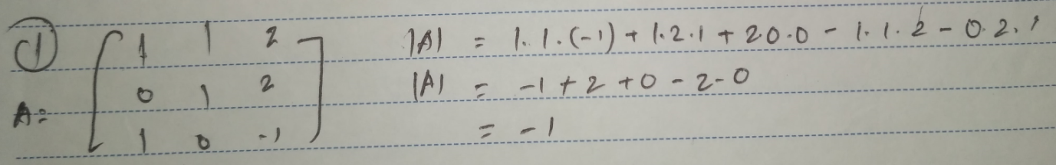 c1) A = [ 1 1 2
0 1 2
1 0 -1 ]
|A| = 1.1.(-1) + 1.2.1 + 20.0 - 1.1.2 - 0.2.1
|A| = -1 + 2 + 0 - 2 - 0
= -1